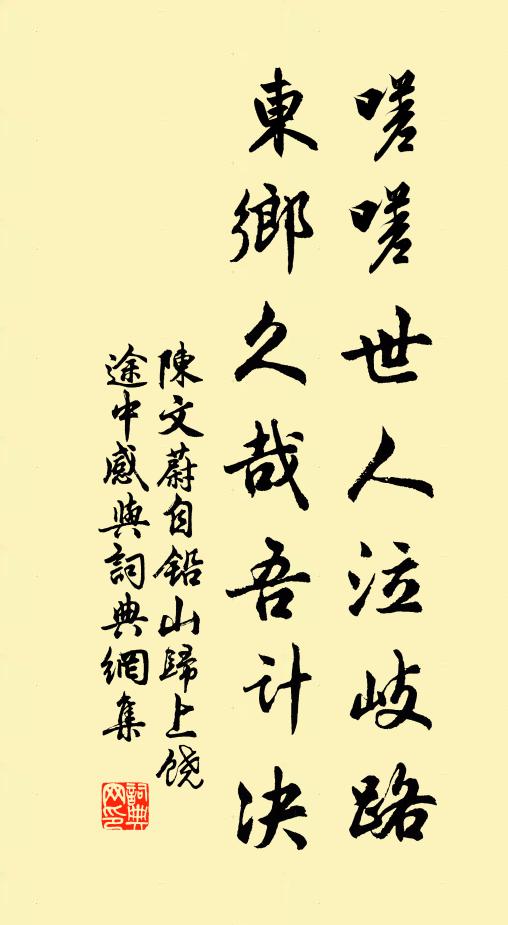 嗟嗟世人泣岐路
東鄉久哉吾計决
陳文蔚自鉛山歸上饒
途中感興詞典網集
詞典網印